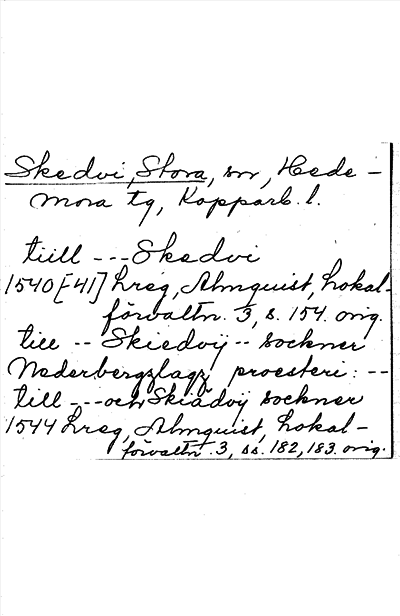 Skedvi, Stora, sn, Hede-
mora tg, Kopparb. l.
tiill --- Skedvi
1540[-41] Lreg, Almquist, Lokal-
förvaltn. 3, s. 154. orig.
till -- Skiedvij -- sockner
Nederbergzlagz proesteri: --
till --- och Skiädvij sockner
1544 Lreg, Almquist, Lokal-
förvaltn. 3, ss. 182, 183. orig.